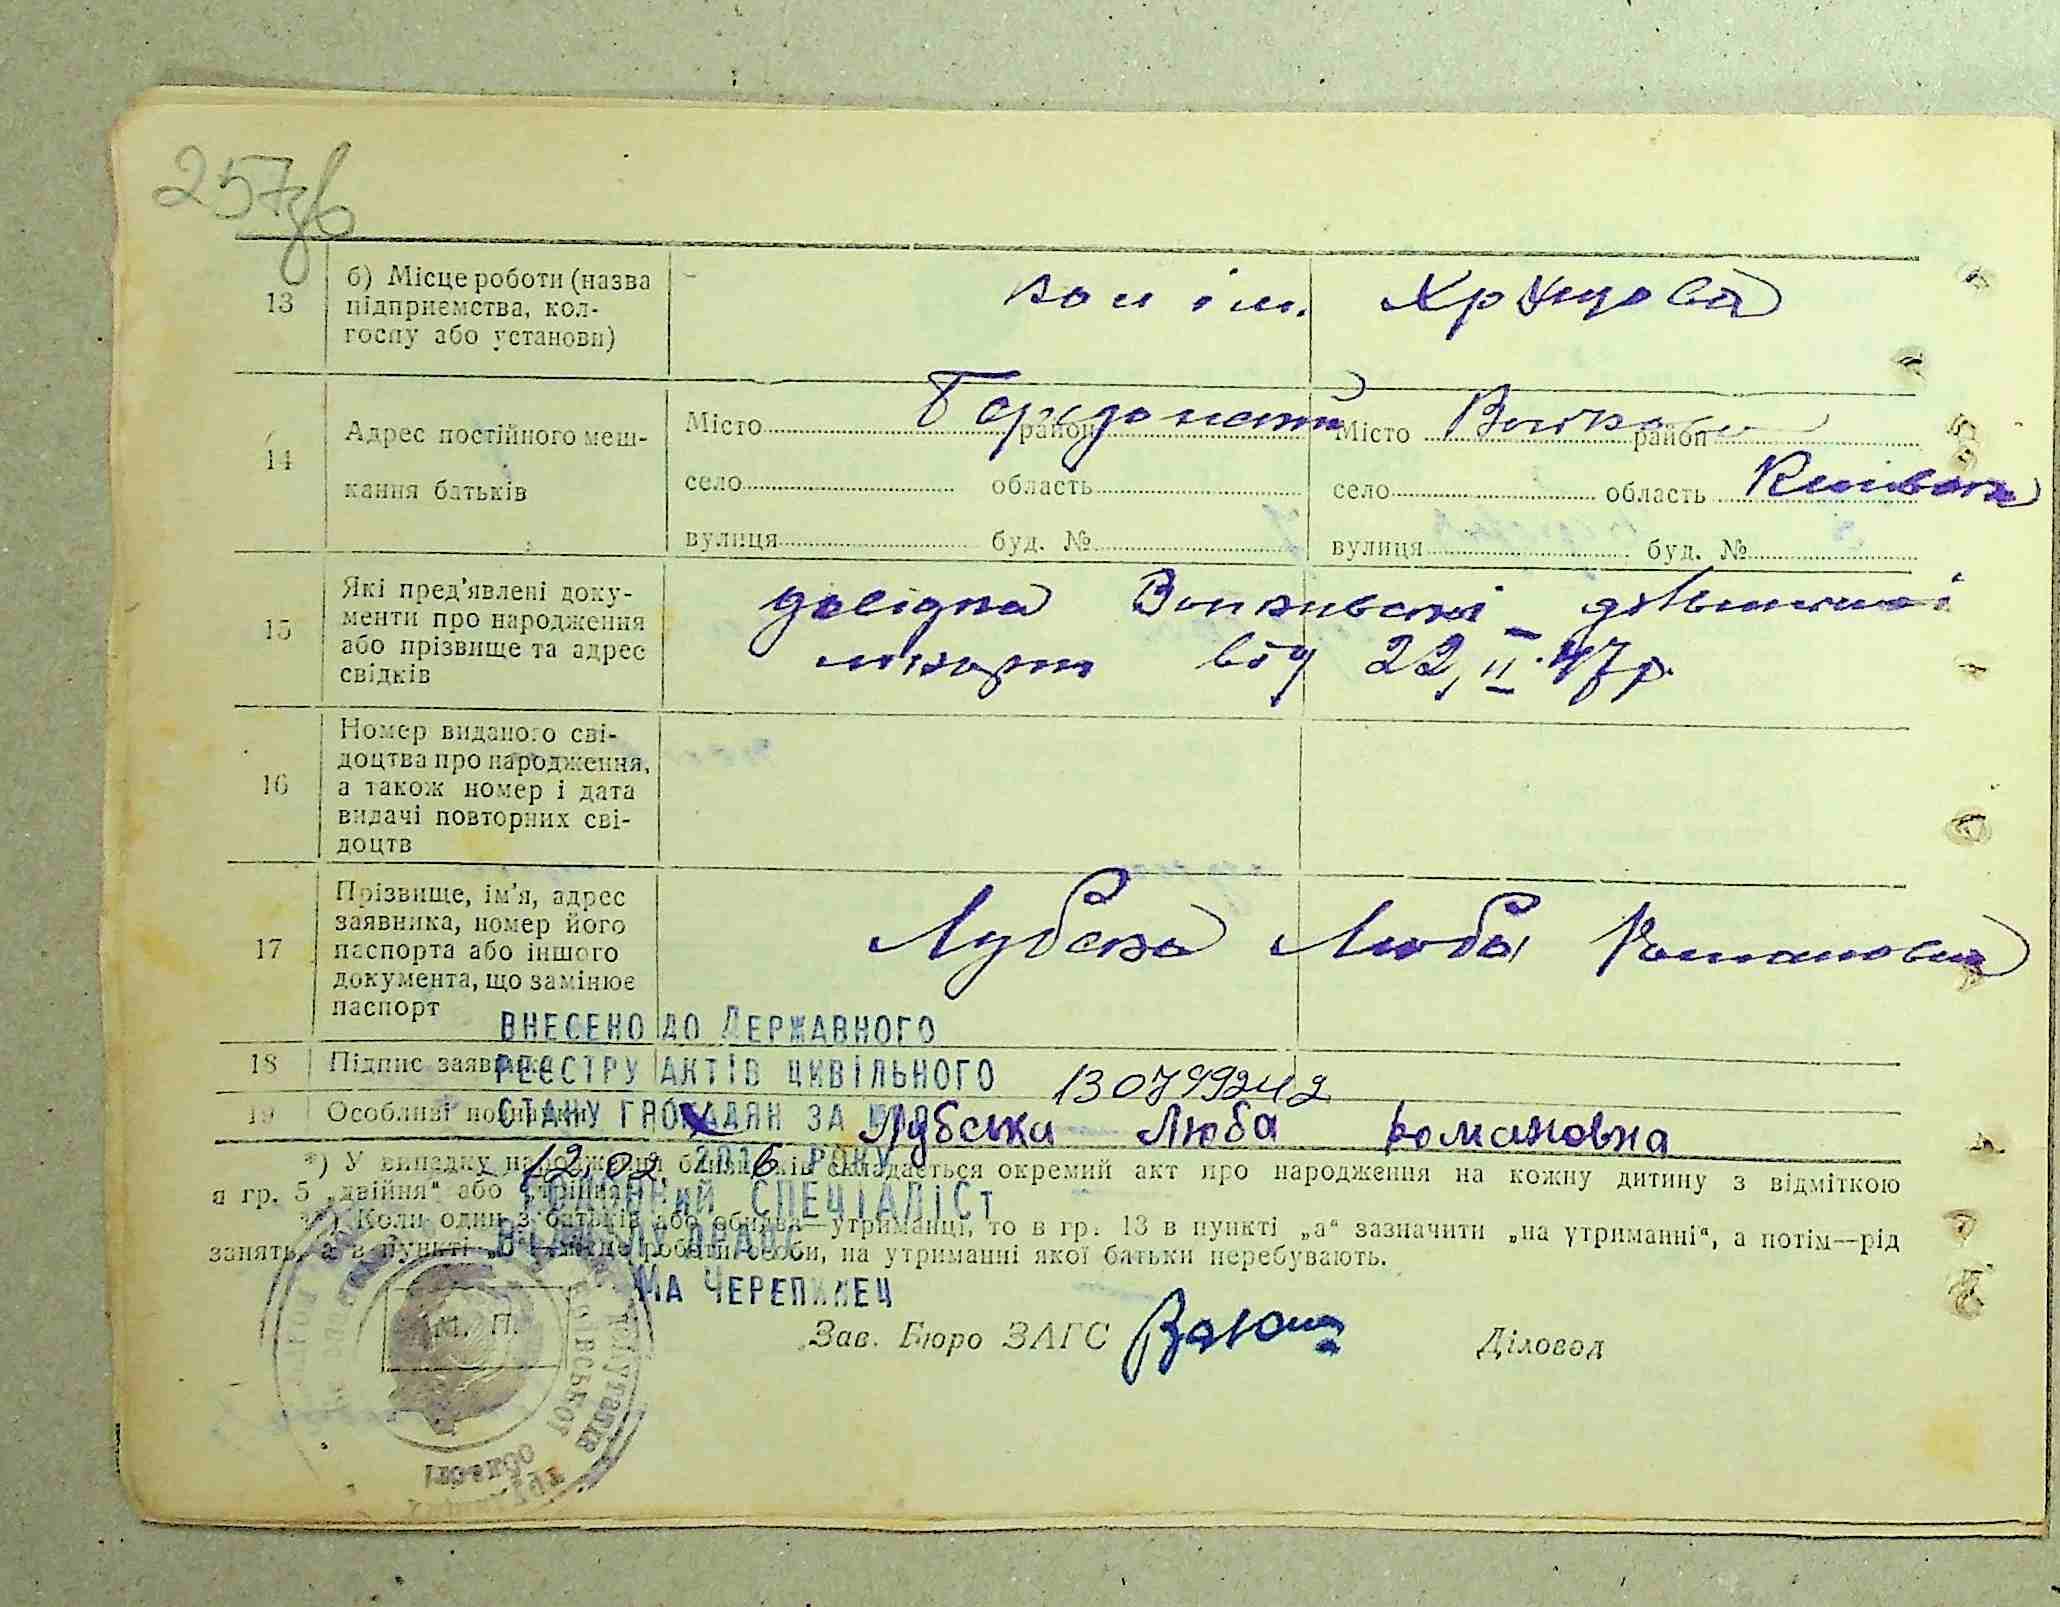 257зв
13 б) Місце роботи (назва
підприємства, кол-
госпу або установи)
кол ім. Хрущова
14 Адрес постійного меш-
кання батьків
Місто район Місто район
село область село область Київська
вулиця буд. № вулиця буд. №
15 Які пред'явлені доку-
менти про народження
або прізвище та адрес
свідків
довідка
від 22, II. 47 р.
16 Номер виданого сві-
доцтва про народження,
а також номер і дата
видачі повторних сві-
доцтв
17 Прізвище, ім'я, адрес
заявника, номер його
паспорта або іншого
документа, що замінює
паспорт
Лубська Люба Романовна
ВНЕСЕНО ДО ДЕРЖАВНОГО
18 Підпис заявника
РЕЄСТРУ АКТІВ ЦИВІЛЬНОГО
130799242
19 Особливі
СТАНУ ГРОМАДЯН ЗА
Лубська Люба Романовна
12.02. 2016 РОКУ
*) У випадку народження близнюків складається окремий акт про народження на кожну дитину з відміткою
в гр. 5 „двійня“ або „трійня“.
ГОЛОВНИЙ СПЕЦІАЛІСТ
**) Коли один з батьків або обидва—утриманці, то в гр. 13 в пункті „а“ зазначити „на утриманні“, а потім—рід
занять, а в пункті „б“ місце роботи особи, на утриманні якої батьки перебувають.
ВІДДІЛУ ДРАЦС
МА ЧЕРЕПИНЕЦ
М. П.
Зав. Бюро ЗАГС
Діловод
області